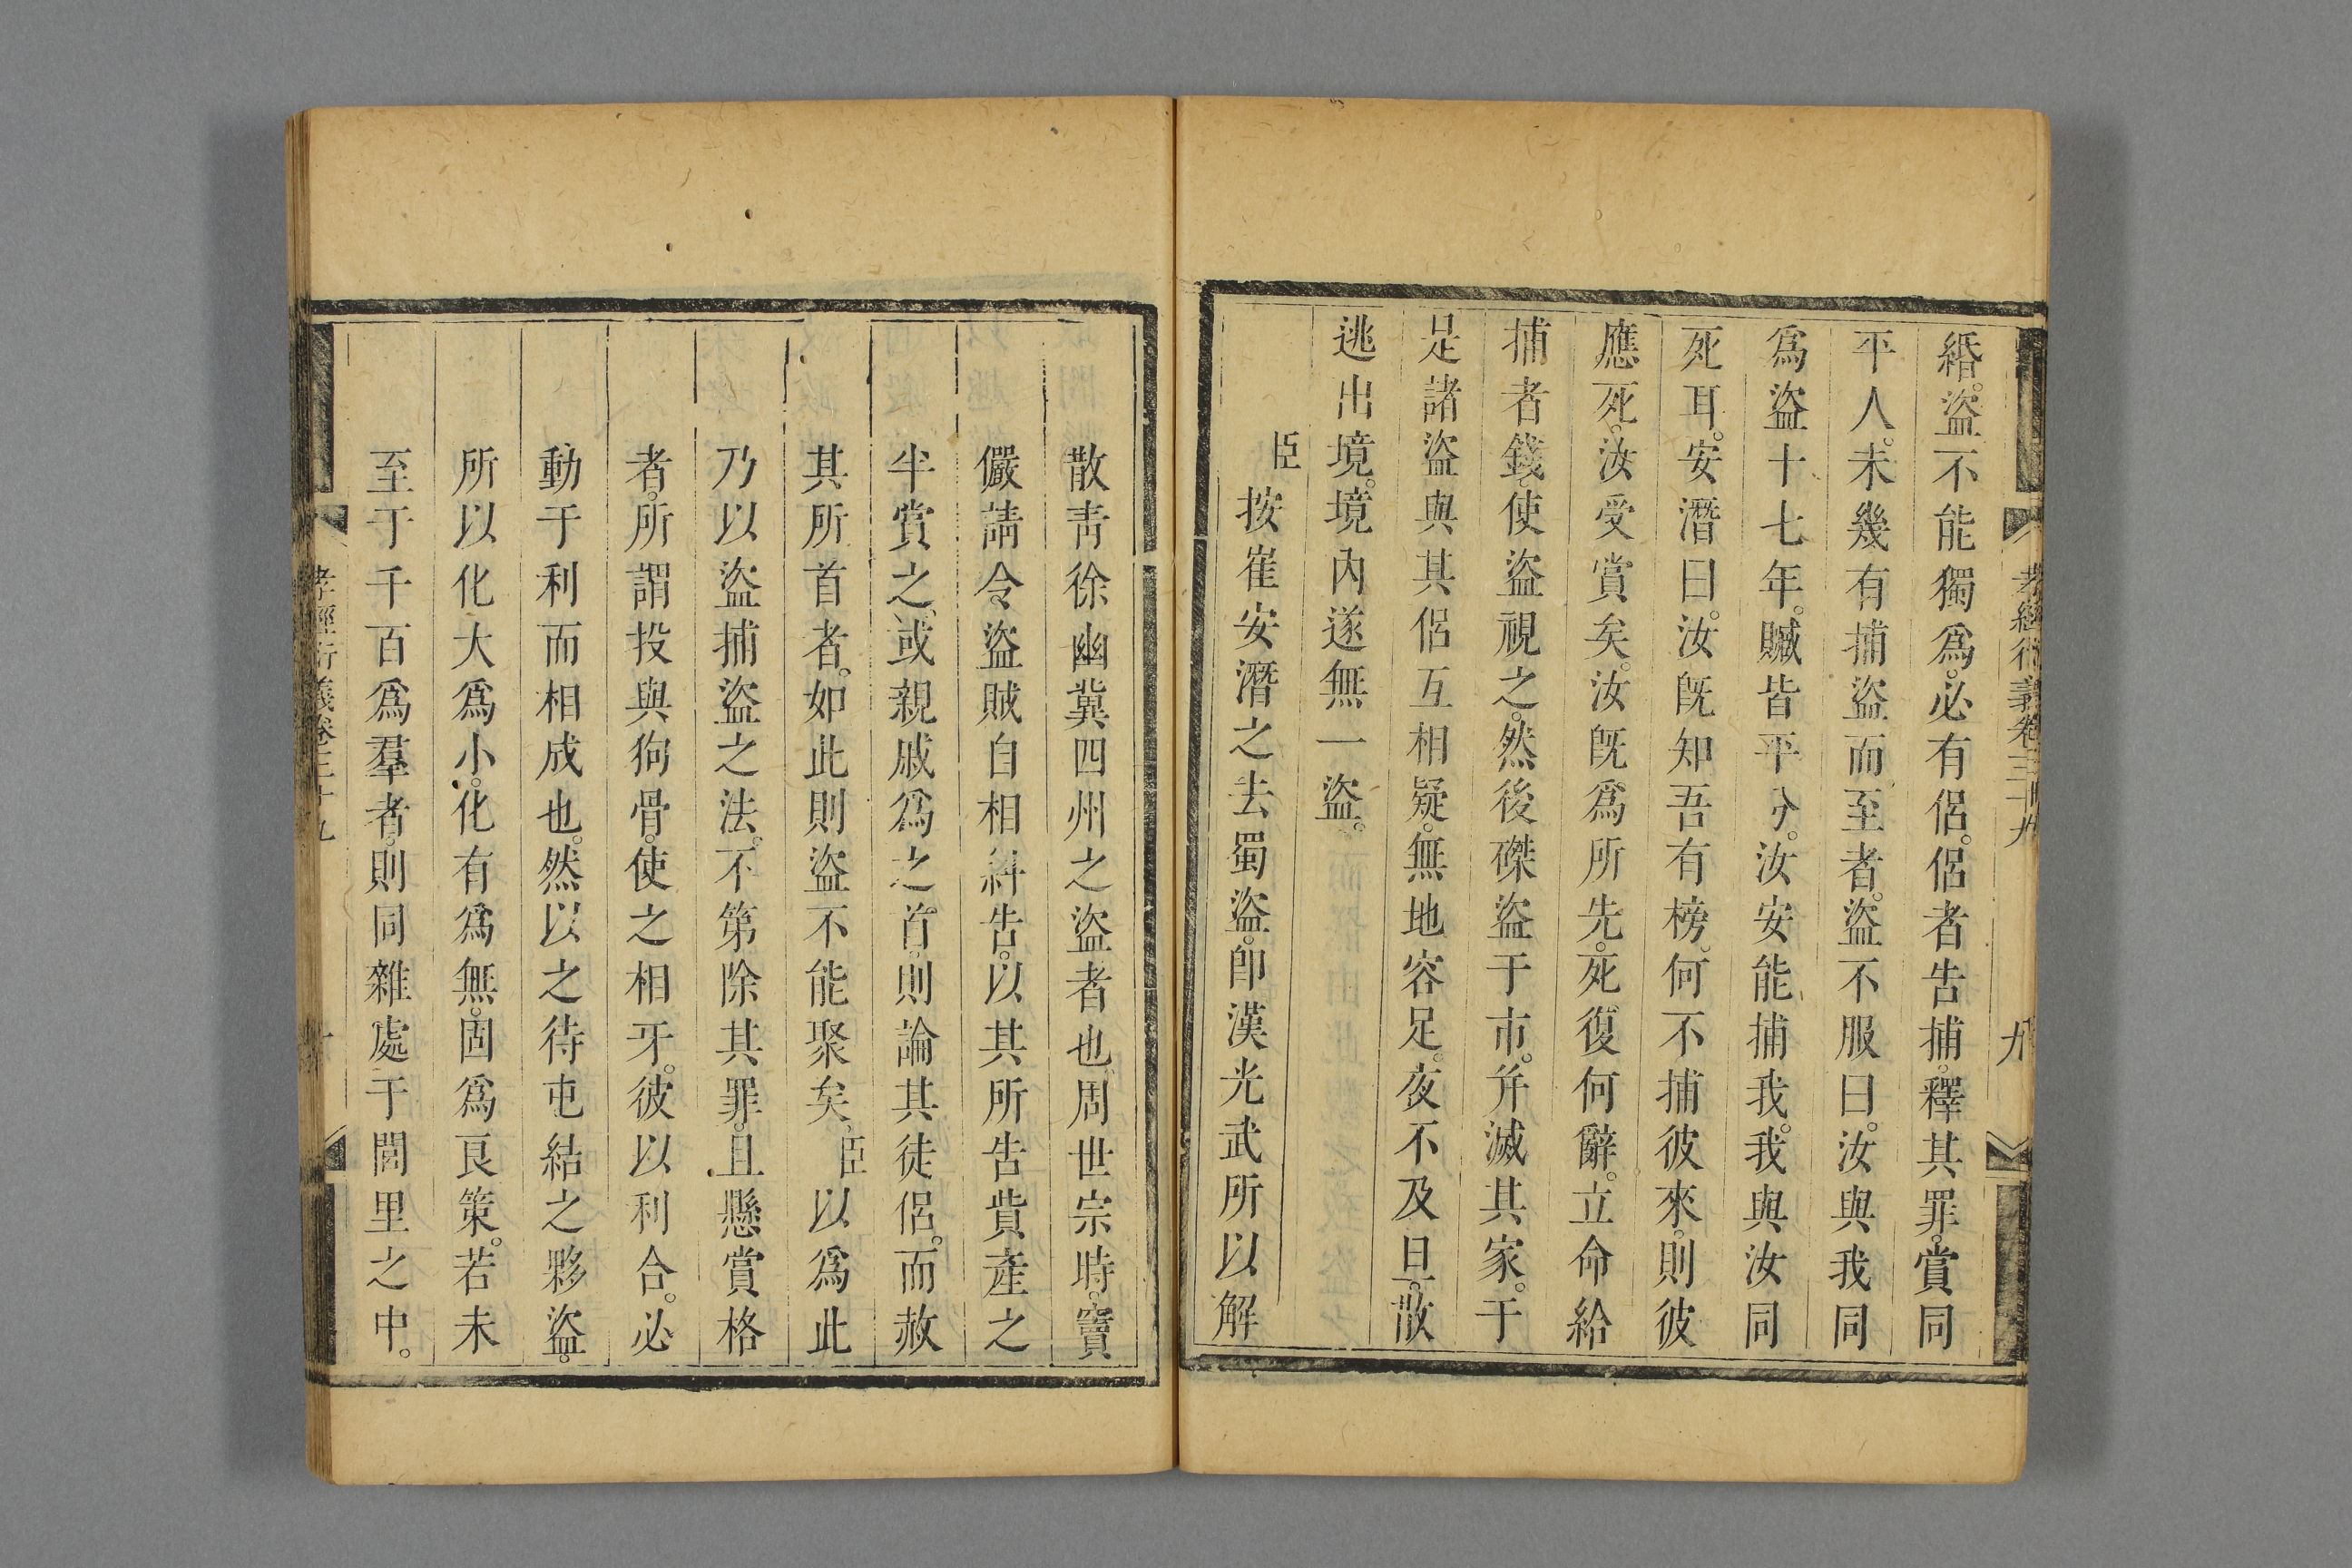 孝經衍義卷三十九 九
緡。盜不能獨爲。必有侶。侶者告捕。釋其罪。賞同
平人。未幾有捕盜而至者。盜不服曰。汝與我同
爲盜十七年。贓皆平分。汝安能捕我。我與汝同
死耳。安潛曰。汝旣知吾有榜。何不捕彼來。則彼
應死。汝受賞矣。汝旣爲所先。死復何辭。立命給
捕者錢。使盜視之。然後磔盜于市。并滅其家。于
是諸盜與其侶互相疑。無地容足。夜不及旦。散
逃出境。境內遂無一盜。
臣按崔安潛之去蜀盜。卽漢光武所以解
散靑徐幽冀四州之盜者也。周世宗時。竇
儼請令盜賊自相糾告。以其所告貲產之
半賞之。或親戚爲之首。則論其徒侶。而赦
其所首者。如此則盜不能聚矣。臣以爲此
乃以盜捕盜之法。不第除其罪。且懸賞格
者。所謂投與狗骨。使之相牙。彼以利合。必
動于利而相成也。然以之待屯結之夥盜。
所以化大爲小。化有爲無。固爲良策。若未
至于千百爲羣者。則同雜處于閭里之中。
孝經衍義卷三十九 十